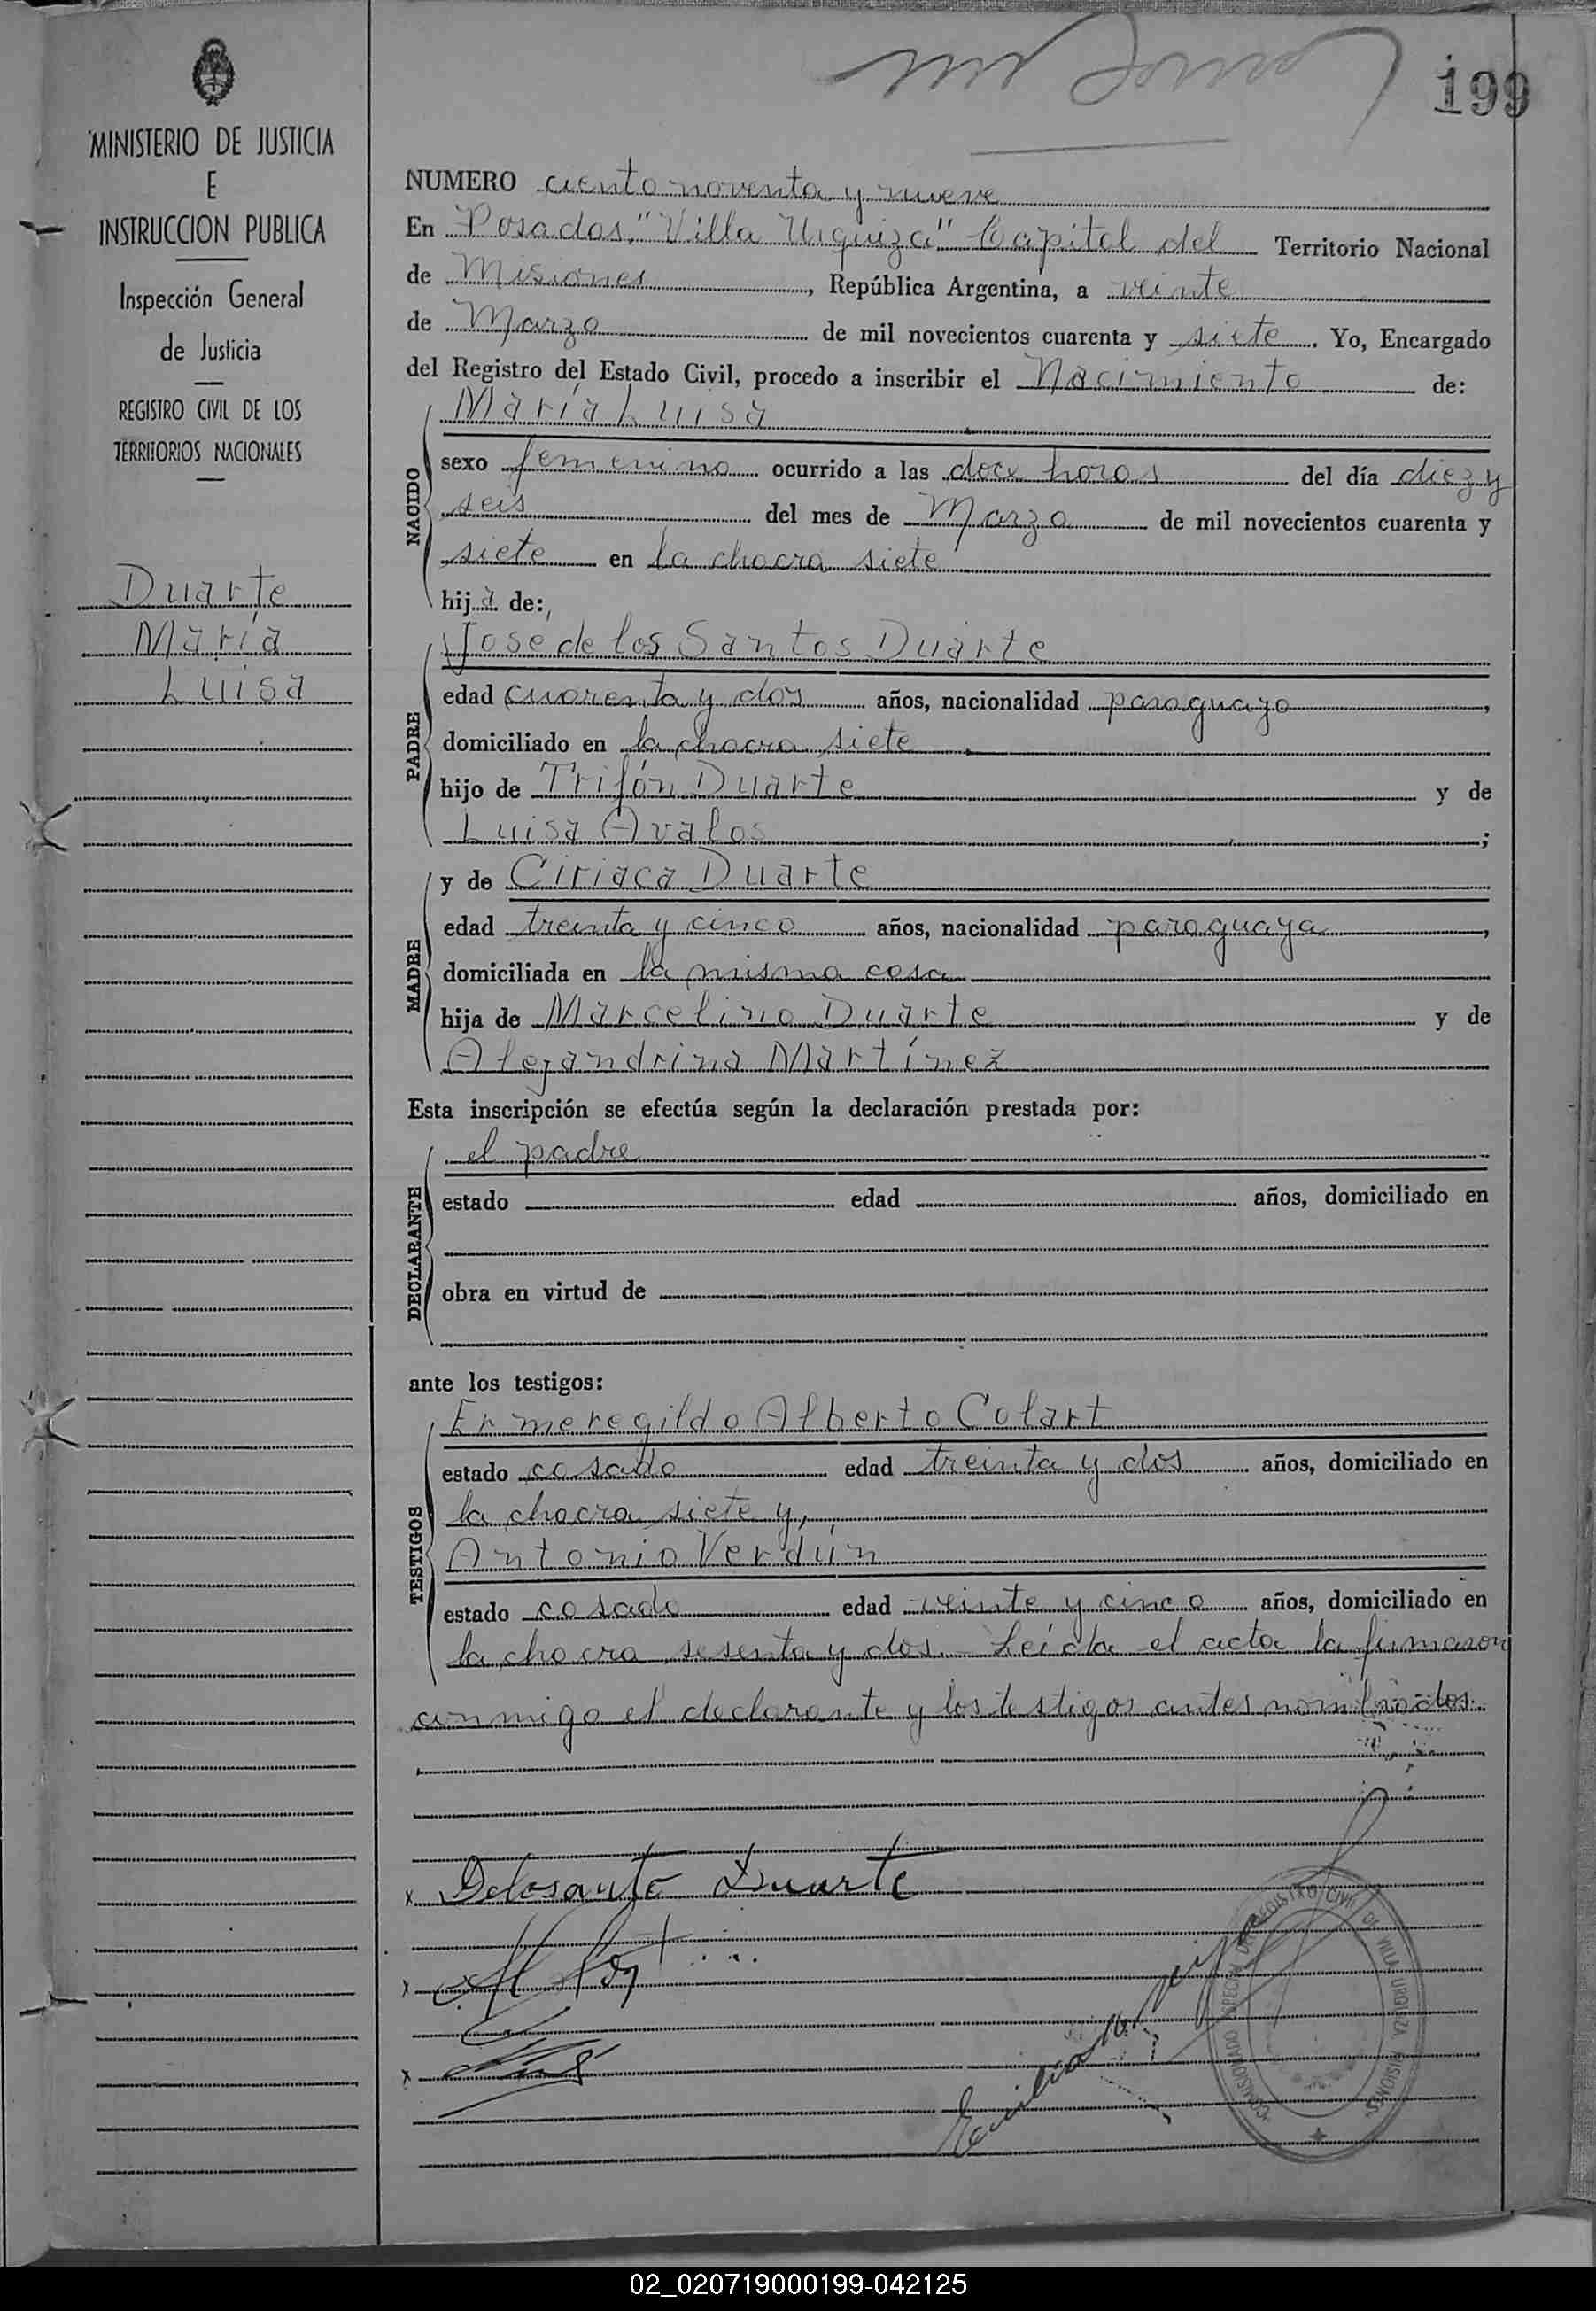 199
MINISTERIO DE JUSTICIA
E
INSTRUCCION PUBLICA
Inspección General
de Justicia
REGISTRO CIVIL DE LOS
TERRITORIOS NACIONALES
Duarte
María
Luisa
NUMERO ciento noventa y nueve
En Posadas, "Villa Urquiza" Capital del Territorio Nacional
de Misiones, República Argentina, a veinte
de Marzo de mil novecientos cuarenta y siete. Yo, Encargado
del Registro del Estado Civil, procedo a inscribir el Nacimiento de:
NACIDO
María Luisa
sexo femenino ocurrido a las doce horas del día diez y
seis del mes de Marzo de mil novecientos cuarenta y
siete en la chacra siete
hija de:
PADRE
José de los Santos Duarte
edad cuarenta y dos años, nacionalidad paraguayo,
domiciliado en la chacra siete
hijo de Trifón Duarte y de
Luisa Avalos;
MADRE
y de Ciriaca Duarte
edad treinta y cinco años, nacionalidad paraguaya,
domiciliada en la misma casa
hija de Marcelino Duarte y de
Alejandrina Martínez
Esta inscripción se efectúa según la declaración prestada por:
DECLARANTE
el padre
estado edad años, domiciliado en
obra en virtud de
ante los testigos:
TESTIGOS
Ermeregildo Alberto Colart
estado casado edad treinta y dos años, domiciliado en
la chacra siete y,
Antonio Verdún
estado casado edad veinte y cinco años, domiciliado en
la chacra sesenta y dos. Leída el acta la firmaron
conmigo el declarante y los testigos antes nombrados.
x Delosanto Duarte
x
x
REGISTRO CIVIL DE VILLA URQUIZA MISIONES
02_020719000199-042125